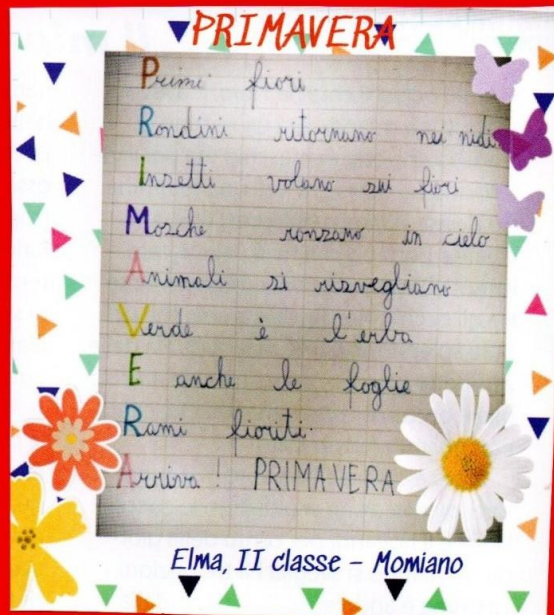 PRIMAVERA
Primi fiori
Rondini ritornano nei nidi
Insetti volano sui fiori
Mosche ronzano in cielo
Animali si risvegliano
Verde è l'erba
E anche le foglie
Rami fioriti.
Arriva! PRIMAVERA
Elma, II classe - Momiano